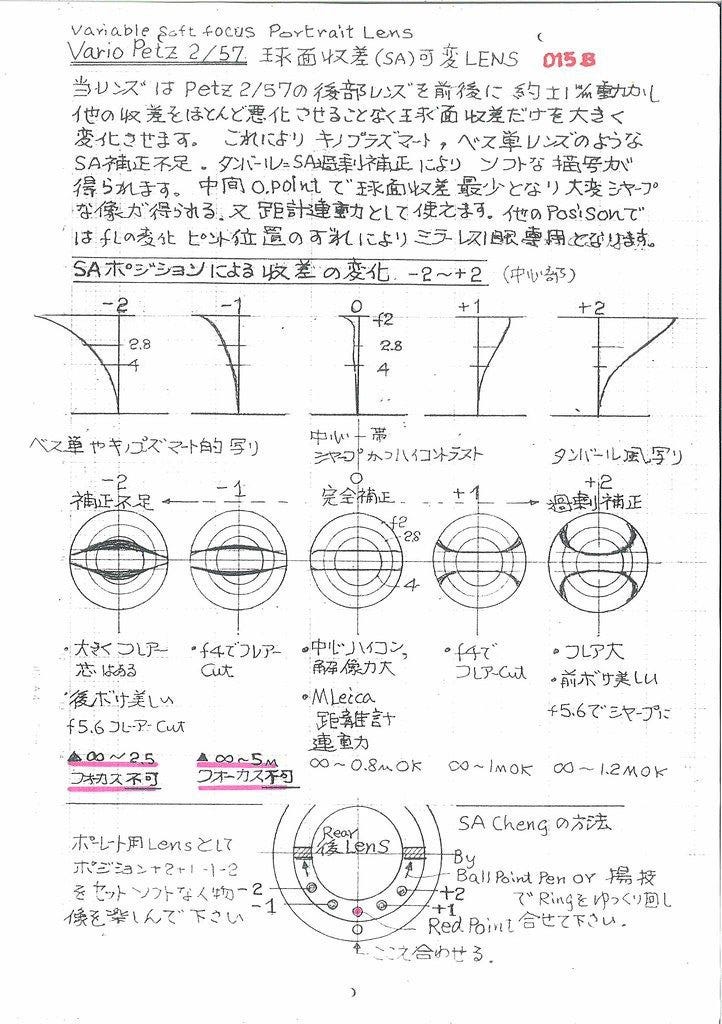 Variable Soft focus Portrait Lens
Vario Petz 2/57 球面収差(SA)可変LENS 015B
当レンズは Petz 2/57の後部レンズを前後に 約±1㎜動かし
他の収差をほとんど悪化させることなく球面収差だけを大きく
変化させます。 これにより キノプラズマート, ベス単レンズのような
SA補正不足。タンバール=SA過剰補正により ソフトな描写が
得られます。中間0,pointで球面収差最少となり大変シャープ
な像が得られる、又 距計連動として使えます。他のPosiSonで
は fLの変化 ピント位置のずれによりミラーレス1眼専用となります。
SAポジションによる収差の変化 -2～+2 (中心部)
-2 -1 0 +1 +2
f2
2.8 2.8
4 4
ベス単やキノプズマート的写り
中心一帯
シャープかつハイコントラスト
タンバール風写り
-2 -1 0 +1 +2
補正不足 完全補正 過剰補正
f2
2.8
4
・大きくフレアー
芯はある
・後ボケ美しい
f5.6 フレーアーCut
▲∞～2.5
フォーカス不可
・f4でフレアー
Cut
▲∞～5m
フォーカス不可
・中心ハイコン,
解像力大
・MLeica
距離計
連動力
∞～0.8m OK
・f4で
フレアーCut
∞～1m OK
・フレア大
・前ボケ美しい
f5.6でシャープに
∞～1.2m OK
ポートレート用Lensとして
ポジション+2+1-1-2
をセットソフトな人物
像を楽しんで下さい
Rear
後LENS
-2
-1
+2
+1
Red Point
ここえ合わせる.
SA Chengの方法
By
Ball Point Pen or 楊枝
でRingをゆっくり回し
合せて下さい.